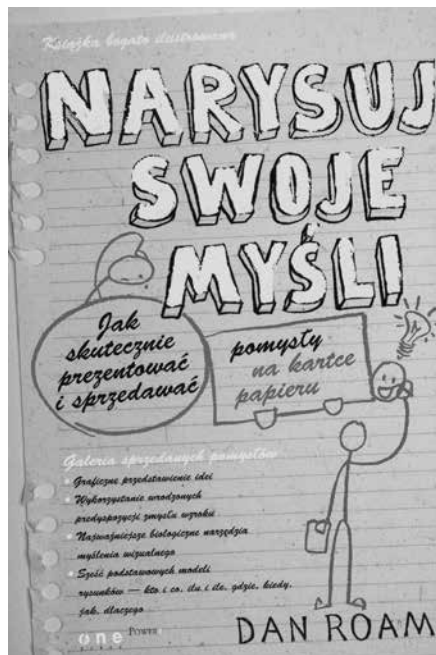 Książka bogato ilustrowana
NARYSUJ
SWOJE
MYŚLI
Jak
skutecznie
prezentować
i sprzedawać
pomysły
na kartce
papieru
Galeria sprzedanych pomysłów
Graficzne przedstawienie idei
Wykorzystanie wrodzonych
predyspozycji zmysłu wzroku
Najważniejsze biologiczne narzędzia
myślenia wizualnego
Sześć podstawowych modeli
rysunków — kto i co, ilu i ile, gdzie, kiedy,
jak, dlaczego
one POWER
DAN ROAM